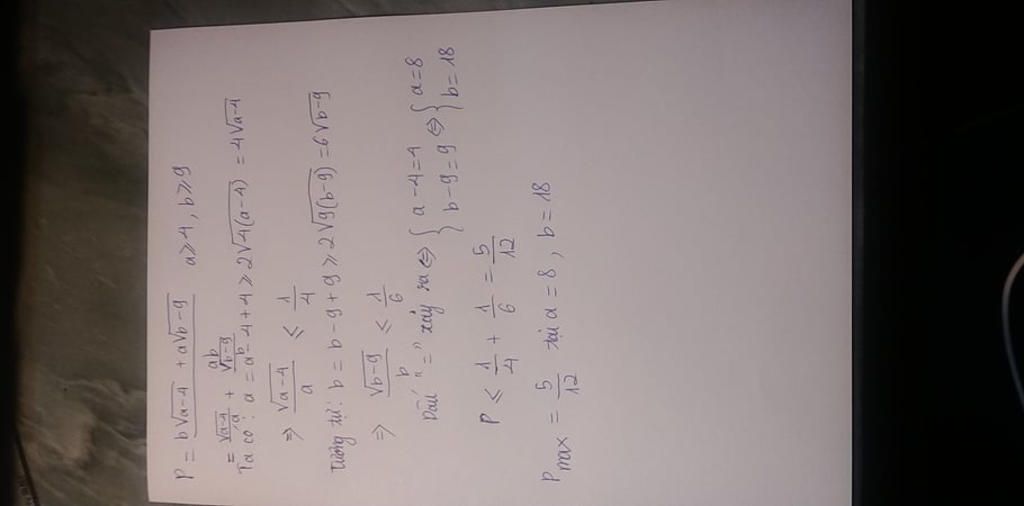 P = b√(a-4) + a√(b-9) / ab a ≥ 4, b ≥ 9
= √(a-4)/a + √(b-9)/b
Ta có: a = a-4+4 ≥ 2√(4(a-4)) = 4√(a-4)
⇒ √(a-4)/a ≤ 1/4
Tương tự: b = b-9+9 ≥ 2√(9(b-9)) = 6√(b-9)
⇒ √(b-9)/b ≤ 1/6
Dấu "=" xảy ra ⇔ { a-4=4 b-9=9 ⇔ { a=8 b=18
P ≤ 1/4 + 1/6 = 5/12
Pmax = 5/12 tại a=8, b=18